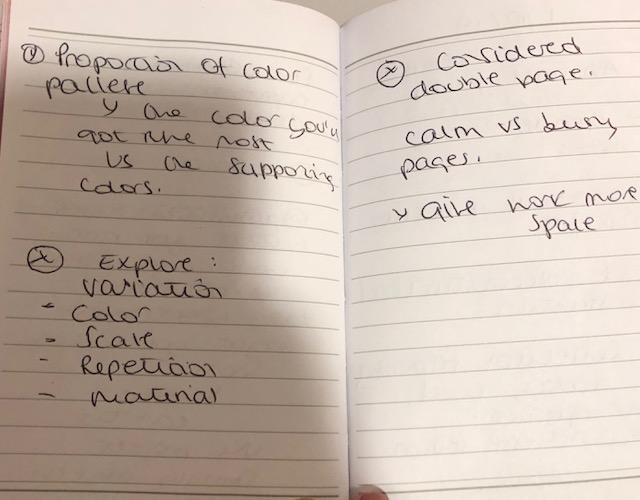 Proporcion of color
pallete
y the color you'v
got the most
vs the supporing
colors.
x Explore :
variation
- Color
- Scale
- Repetition
- material
x Considered
double page.
calm vs busy
pages.
y give work more
space